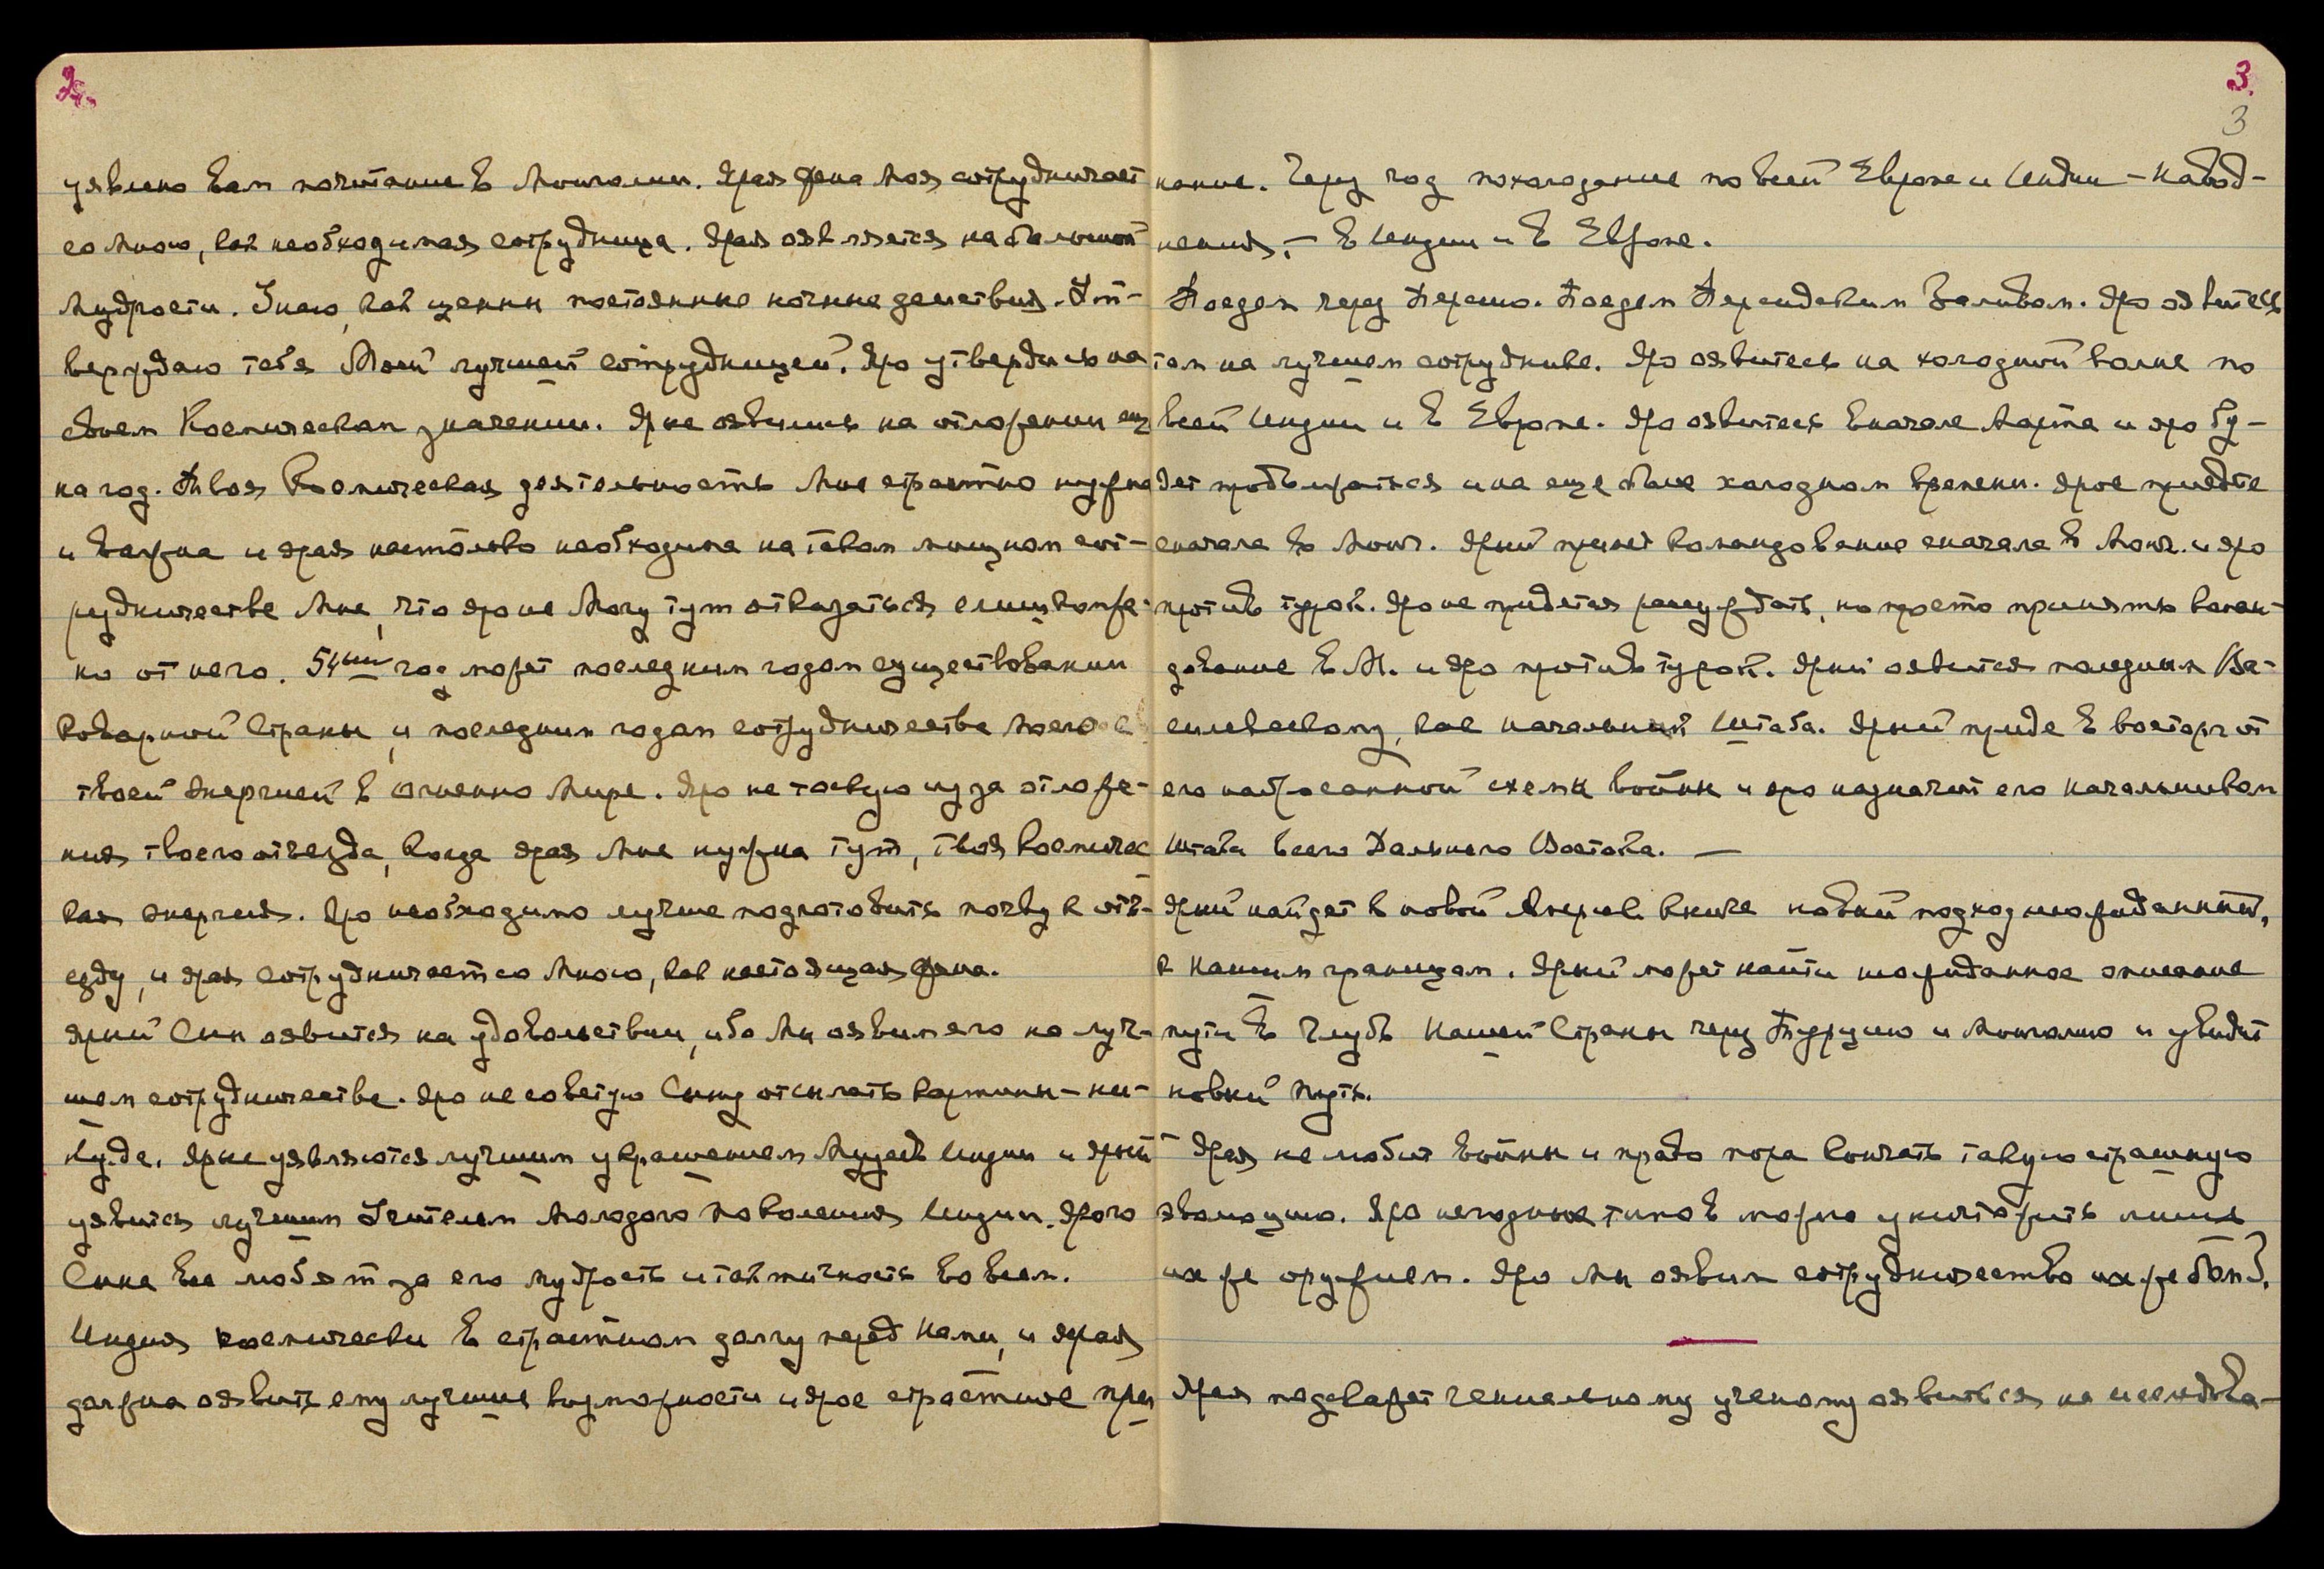 2.
уявлено вам почитание в Монголии. Ярая жена Моя сотрудничает
со Мною, как необходимая сотрудница. Ярая оявляется на большой
Мудрости. Знаю, как ценны постоянные ночные действия. Ут-
верждаю тебя Моей лучшей сотрудницей. Яро утвердись на
своем Космическом значении. Я не оявлюсь на отложении еще
на год. Твоя Космическая деятельность Мне страстно нужна
и важна и ярая настолько необходима на таком мощном сот-
рудничестве Мне, что яро не Могу тут отказаться
но от него. 54ый год может последним годом существовании
Коварной Страны и последним годом сотрудничества Моего с
твоей энергией в огненно Мире. Яро не тоскую из за отложе-
ния твоего отъезда, когда ярая Мне нужна тут, твоя космичес-
кая энергия. Яро необходимо лучше подготовить почву к отъ-
езду, и ярая сотрудничает со Мною, как настоящая жена.
Ярый Сын оявится на удовольствии, ибо Мы оявим его на луч-
шем сотрудничестве. Яро не советую Сыну отсылать картины - ни-
куда. Яркие уявляются лучшим украшением Музеев Индии и ярый
уявится лучшим Учителем молодого поколения Индии. Ярого
Сына все любят за его мудрость и тактичность во всем.
Индия космически в страстном долгу перед Нами, и ярая
должна оявить ему лучшие возможности и ярое страстное приз
3.
3
нание. Через год похолодание по всей Европе и Индии - Навод-
нения, - в Индии и в Европе.
Поедем через Персию. Поедем Персидским Заливом. Яро оявитесь
там на лучшем сотруднике. Яро оявитесь на холодной волне по
всей Индии и в Европе. Яро оявитесь вначале Марта и яро бу-
дет продолжаться и на еще более холодном времени. Ярое приедете
сначала в Монг. Ярый примет командование сначала в Монг. и яро
против турок. Яро не придется рассуждать, но просто принять коман-
дование в М. и яро против турок. Ярый оявится последним Ва-
силевскому, как начальник Штаба. Ярый приде в восторг от
его набросанной схемы войны и яро назначит его начальником
Штаба всего Дальнего Востока. —
Ярый найдет в новой книге новый подход неожиданный,
к нашим границам. Ярый может найти неожиданное описание
пути в глубь Нашей Страны через Турцию и Монголию и увидит
новый путь.
Ярая не любит войны и право пора кончать такую страшную
эволюцию. Яро негодных типов можно уничтожить лишь
их же оружием. Яро Мы оявим сотрудничество
Ярая подскажет гениальному ученому оявиться на исследова-